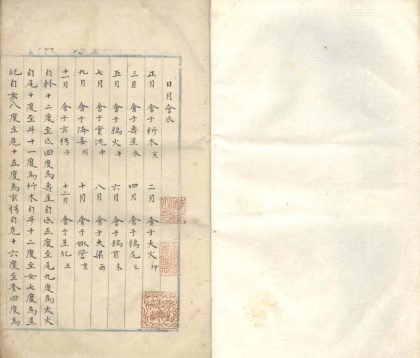 日月會辰
正月 會于析木寅 二月 會于大火卯
三月 會于壽星辰 四月 會于鶉尾巳
五月 會于鶉火午 六月 會于鶉首未
七月 會于實沈申 八月 會于大梁酉
九月 會于降婁戌 十月 會于娵訾亥
十一月 會于玄枵子 十二月 會于星紀丑
自軫十二度至氐四度為壽星自氐五度至尾九度為大火
自尾十度至斗十一度為析木自斗十二度至女七度為星
紀自女八度至危十五度為玄枵自危十六度至奎四度為